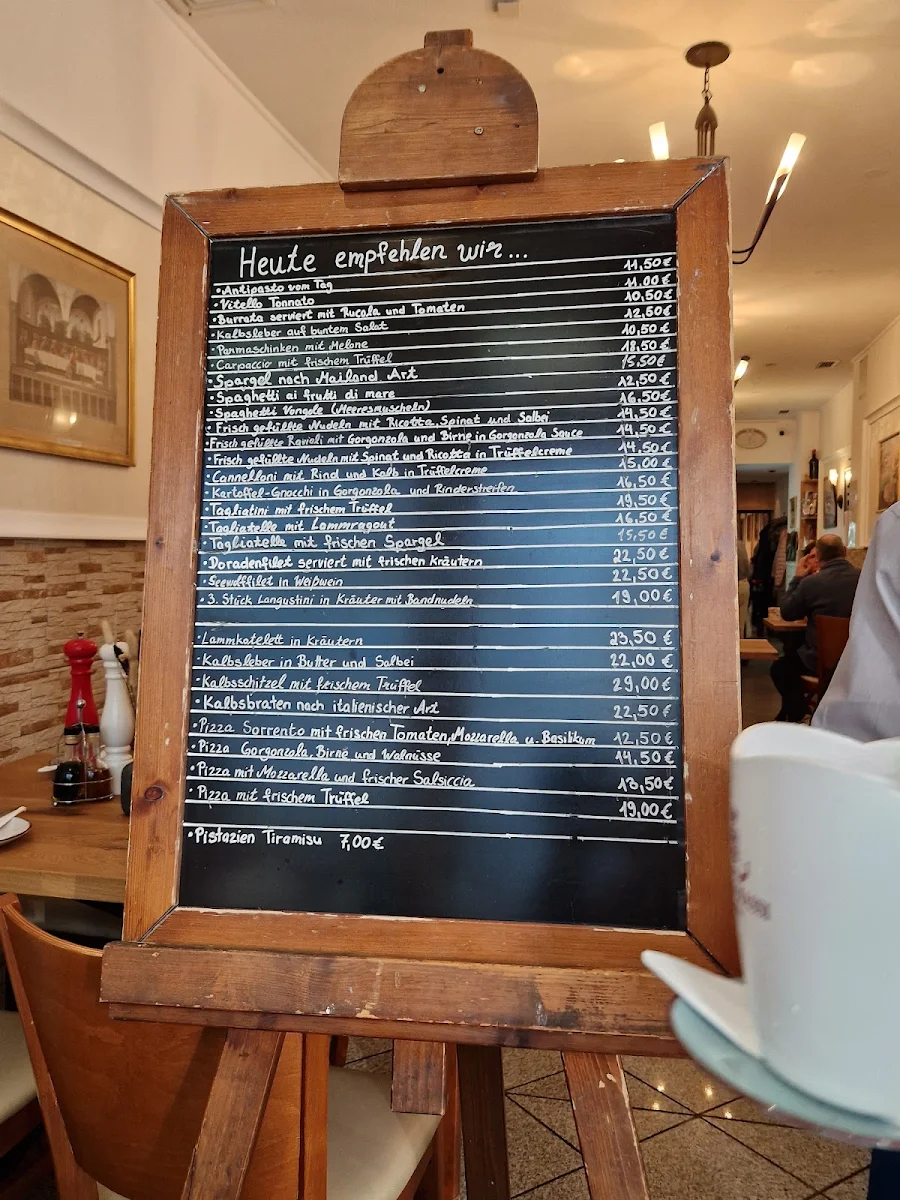 Heute empfehlen wir...
•Antipasto vom Tag 11,50€
•Vitello Tonnato 11.00€
•Burrata serviert mit Rucola und Tomaten 10,50€
•Kalbsleber auf buntem Salat 12,50€
•Parmaschinken mit Melone 10,50€
•Carpaccio mit frischem Trüffel 18,50€
•Spargel nach Mailand Art 15,50€
•Spaghetti ai frutti di mare 12,50€
•Spaghetti Vongole (Meeresmuscheln) 16,50€
•Frisch gefüllte Nudeln mit Ricotta, Spinat und Salbei 14,50€
•Frisch gefüllte Ravioli mit Gorgonzola und Birne in Gorgonzola Sauce 14,50€
•Frisch gefüllte Nudeln mit Spinat und Ricotta in Trüffelcreme 14,50€
•Cannelloni mit Rind und Kalb in Trüffelcreme 15,00€
•Kartoffel-Gnocchi in Gorgonzola und Rinderstreifen 16,50€
•Tagliatini mit frischem Trüffel 19,50€
•Tagliatelle mit Lammragout 16,50€
•Tagliatelle mit frischen Spargel 15,50€
•Doradenfilet serviert mit frischen Kräutern 22,50€
•Seewolffilet in Weißwein 22,50€
•3. Stück Langustini in Kräuter mit Bandnudeln 19,00€
•Lammkotelett in Kräutern 23,50€
•Kalbsleber in Butter und Salbei 22,00€
•Kalbsschitzel mit frischem Trüffel 29,00€
•Kalbsbraten nach italienischer Art 22,50€
•Pizza Sorrento mit frischen Tomaten, Mozzarella u. Basilikum 12,50€
•Pizza Gorgonzola, Birne und Walnüsse 14,50€
•Pizza mit Mozzarella und frischer Salsiccia 13,50€
•Pizza mit frischem Trüffel 19,00€
•Pistazien Tiramisu 7,00€